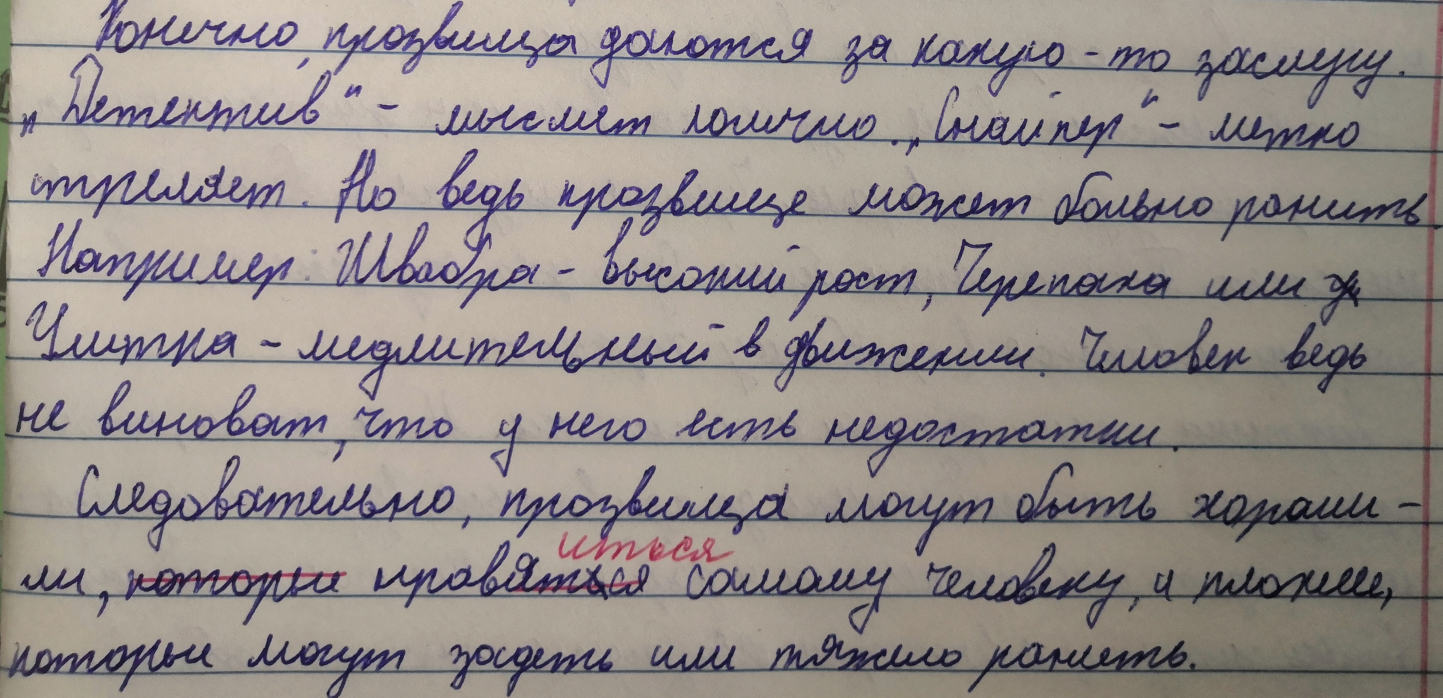 Конечно, прозвища даются за какую-то заслугу.
„Детектив“ - мыслит логично. „Снайпер“ - метко
стреляет. Но ведь прозвище может больно ранить.
Например: Швабра - высокий рост, Черепаха или
Улитка - медлительный в движении. Человек ведь
не виноват, что у него есть недостатки.
Следовательно, прозвища могут быть хороши-
ми, которые нравятся иться самому человеку, и плохие,
которые могут задеть или тяжело ранить.